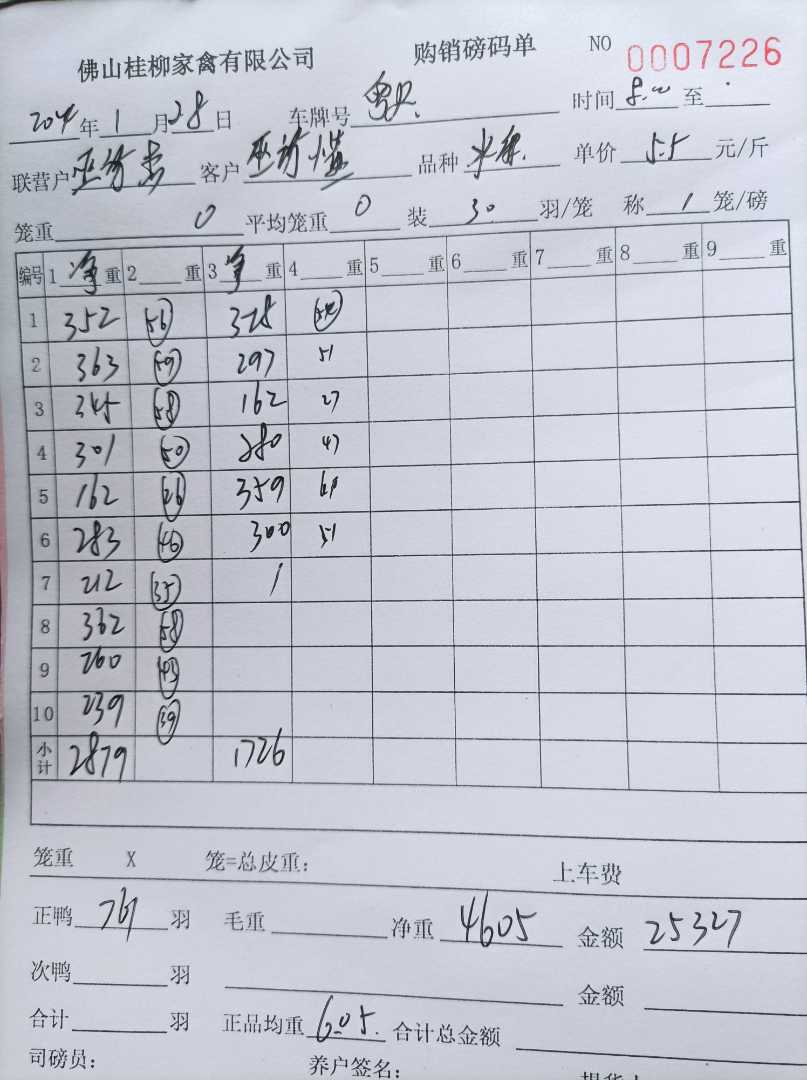 佛山桂柳家禽有限公司 购销磅码单 NO 0007226
2024年1月28日 车牌号 时间8:00至
联营户 客户 品种 单价5.5元/斤
笼重0 平均笼重0 装30羽/笼 称1笼/磅
编号 1净重 2重 3净重 4重 5重 6重 7重 8重 9重
1 352 56 328
2 363 59 297 51
3 345 58 162 27
4 301 50 280 47
5 162 26 359 61
6 283 46 300 51
7 212 35 /
8 362 58
9 260 43
10 239 39
小计 2879 1726
笼重 X 笼=总皮重: 上车费
正鸭761羽 毛重 净重4605 金额25327
次鸭 羽 金额
合计 羽 正品均重6.05. 合计总金额
司磅员: 养户签名: